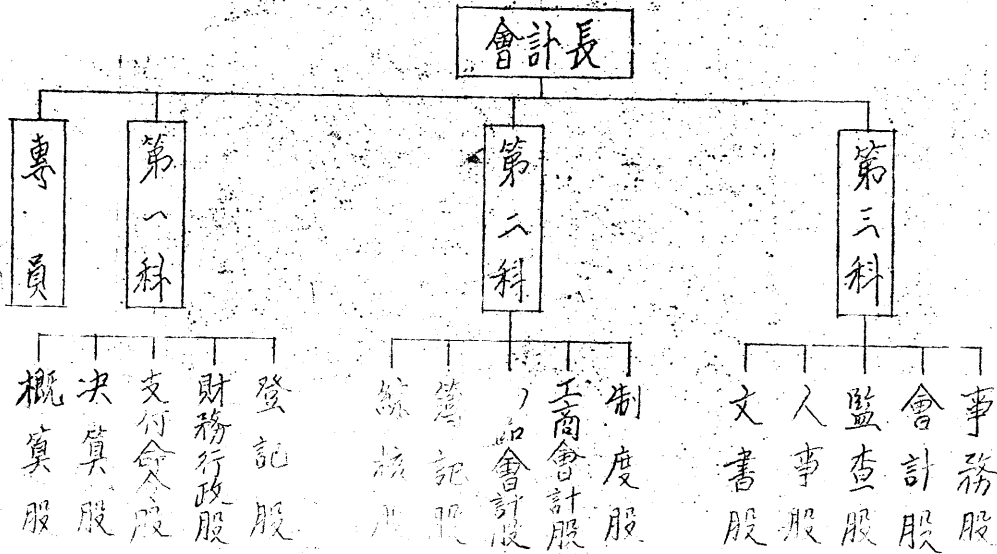 會計長
專員
第一科
第二科
第三科
概算股
決算股
支付命令股
財務行政股
登記股
綜核
簿記股
會計股
工商會計股
制度股
文書股
人事股
監查股
會計股
事務股